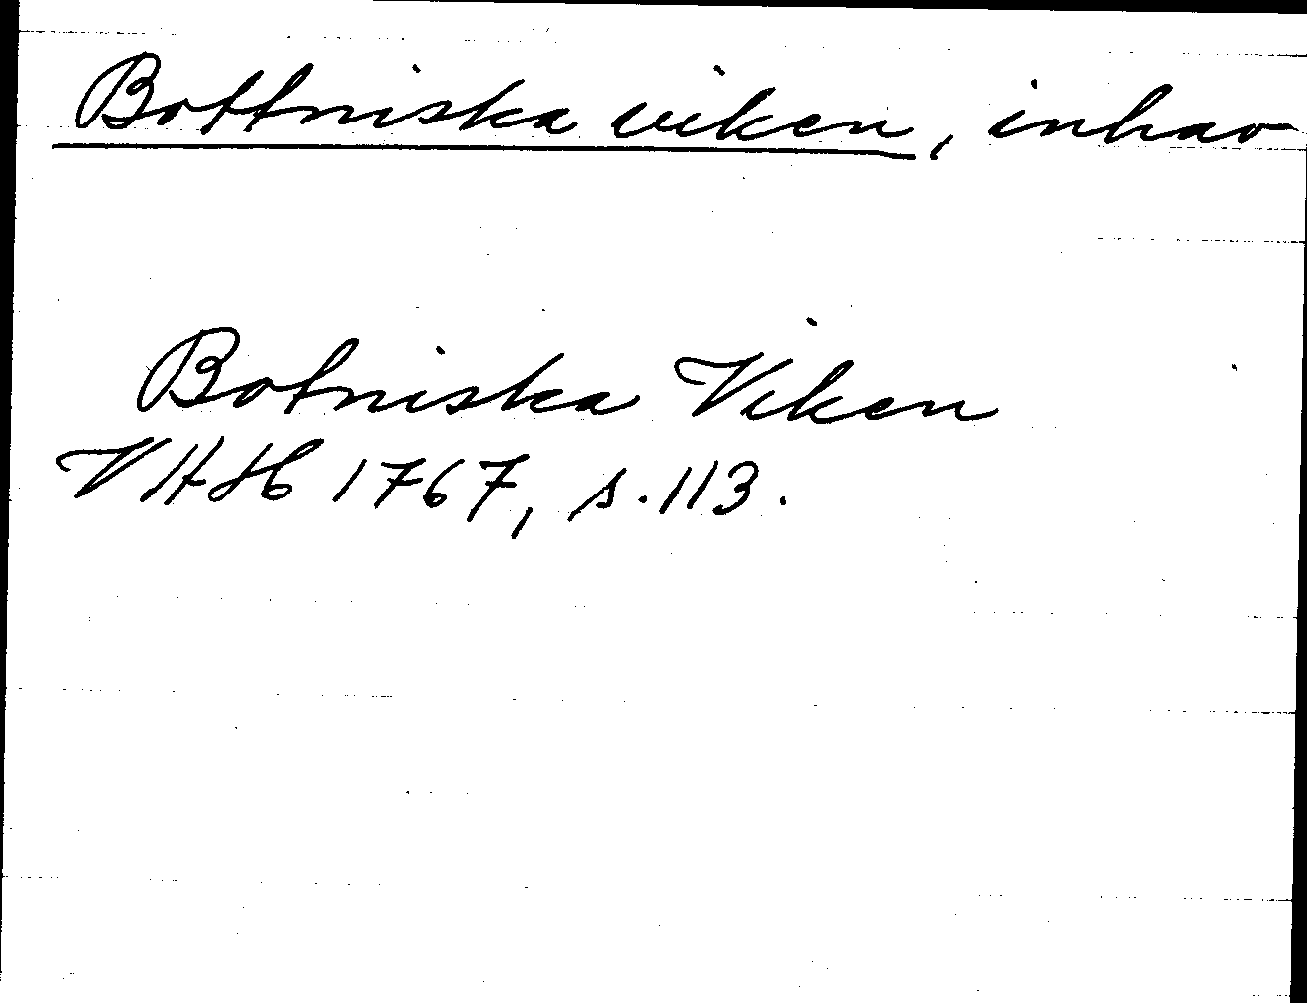 Bottniska viken, inhav
Botniska Viken
VHAH 1767, s. 113.